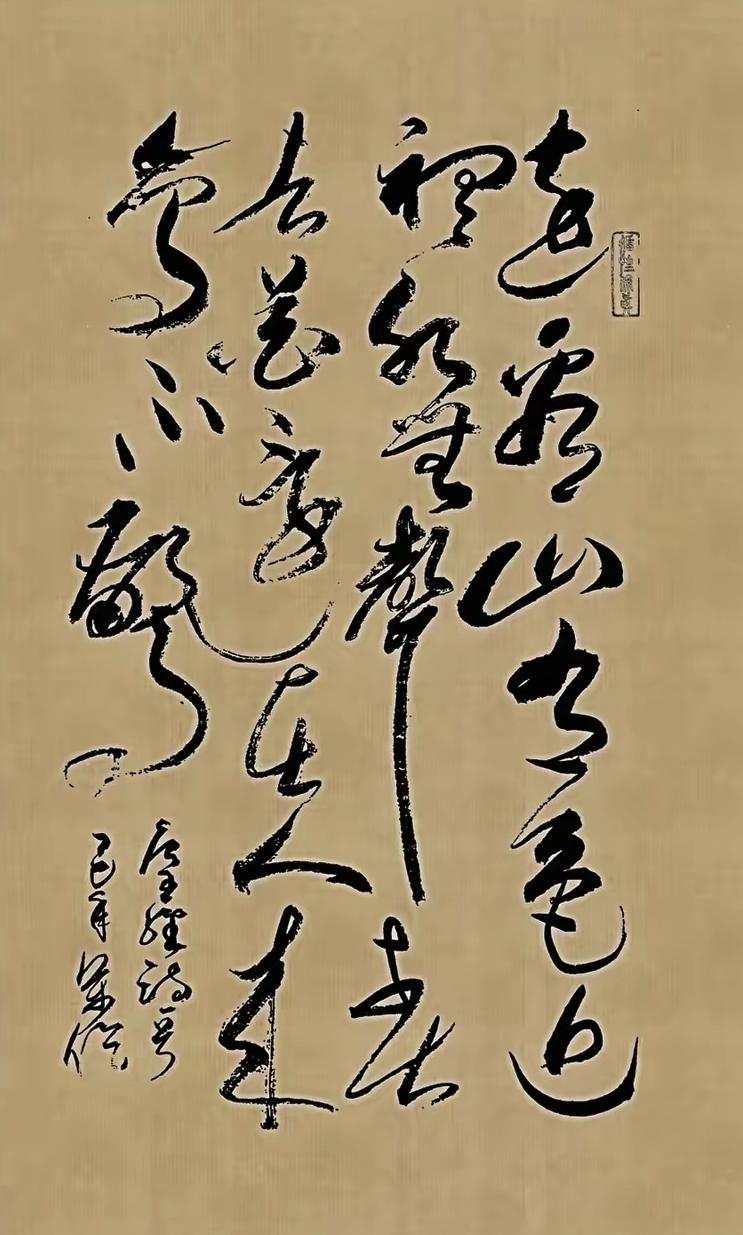 遠看山有色近
聽水無聲春
去花還在人來
鳥不驚
唐王維詩